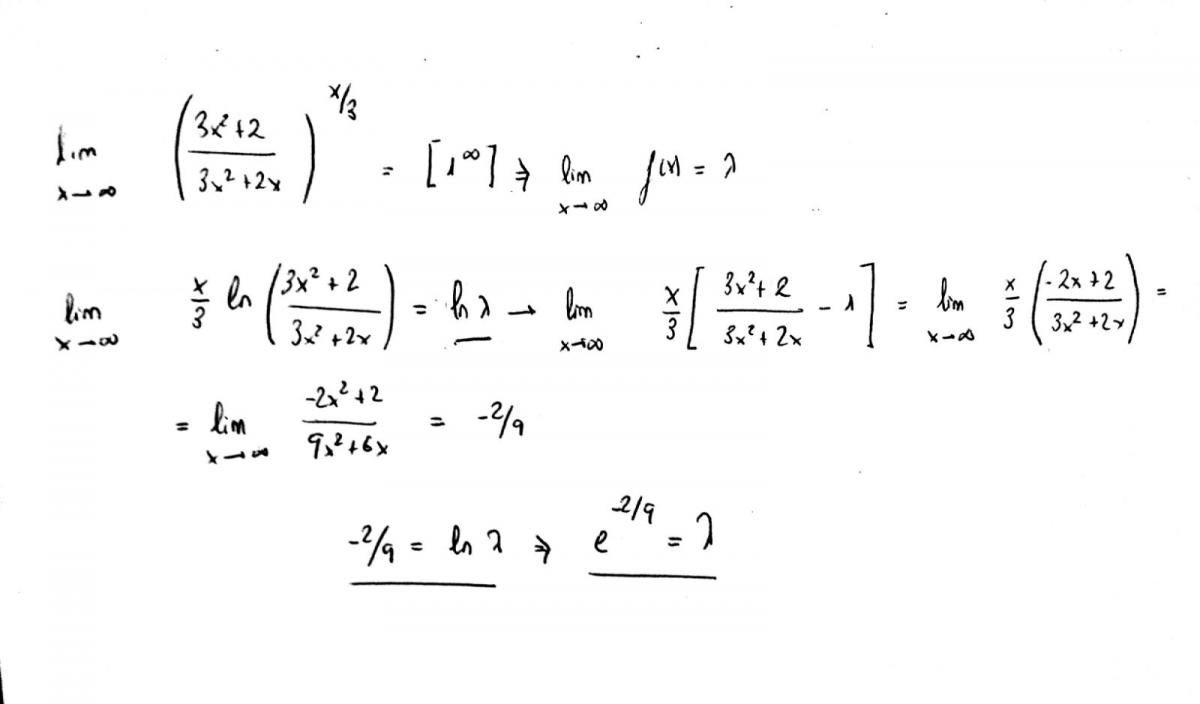 lim x→∞ ((3x²+2)/(3x²+2x))^(x/3) = [1^∞] ⇒ lim x→∞ f(x) = λ
lim x→∞ x/3 ln((3x²+2)/(3x²+2x)) = ln λ → lim x→∞ x/3 [(3x²+2)/(3x²+2x) - 1] = lim x→∞ x/3 ((-2x+2)/(3x²+2x)) =
= lim x→∞ (-2x²+2)/(9x²+6x) = -2/9
-2/9 = ln λ ⇒ e^(-2/9) = λ